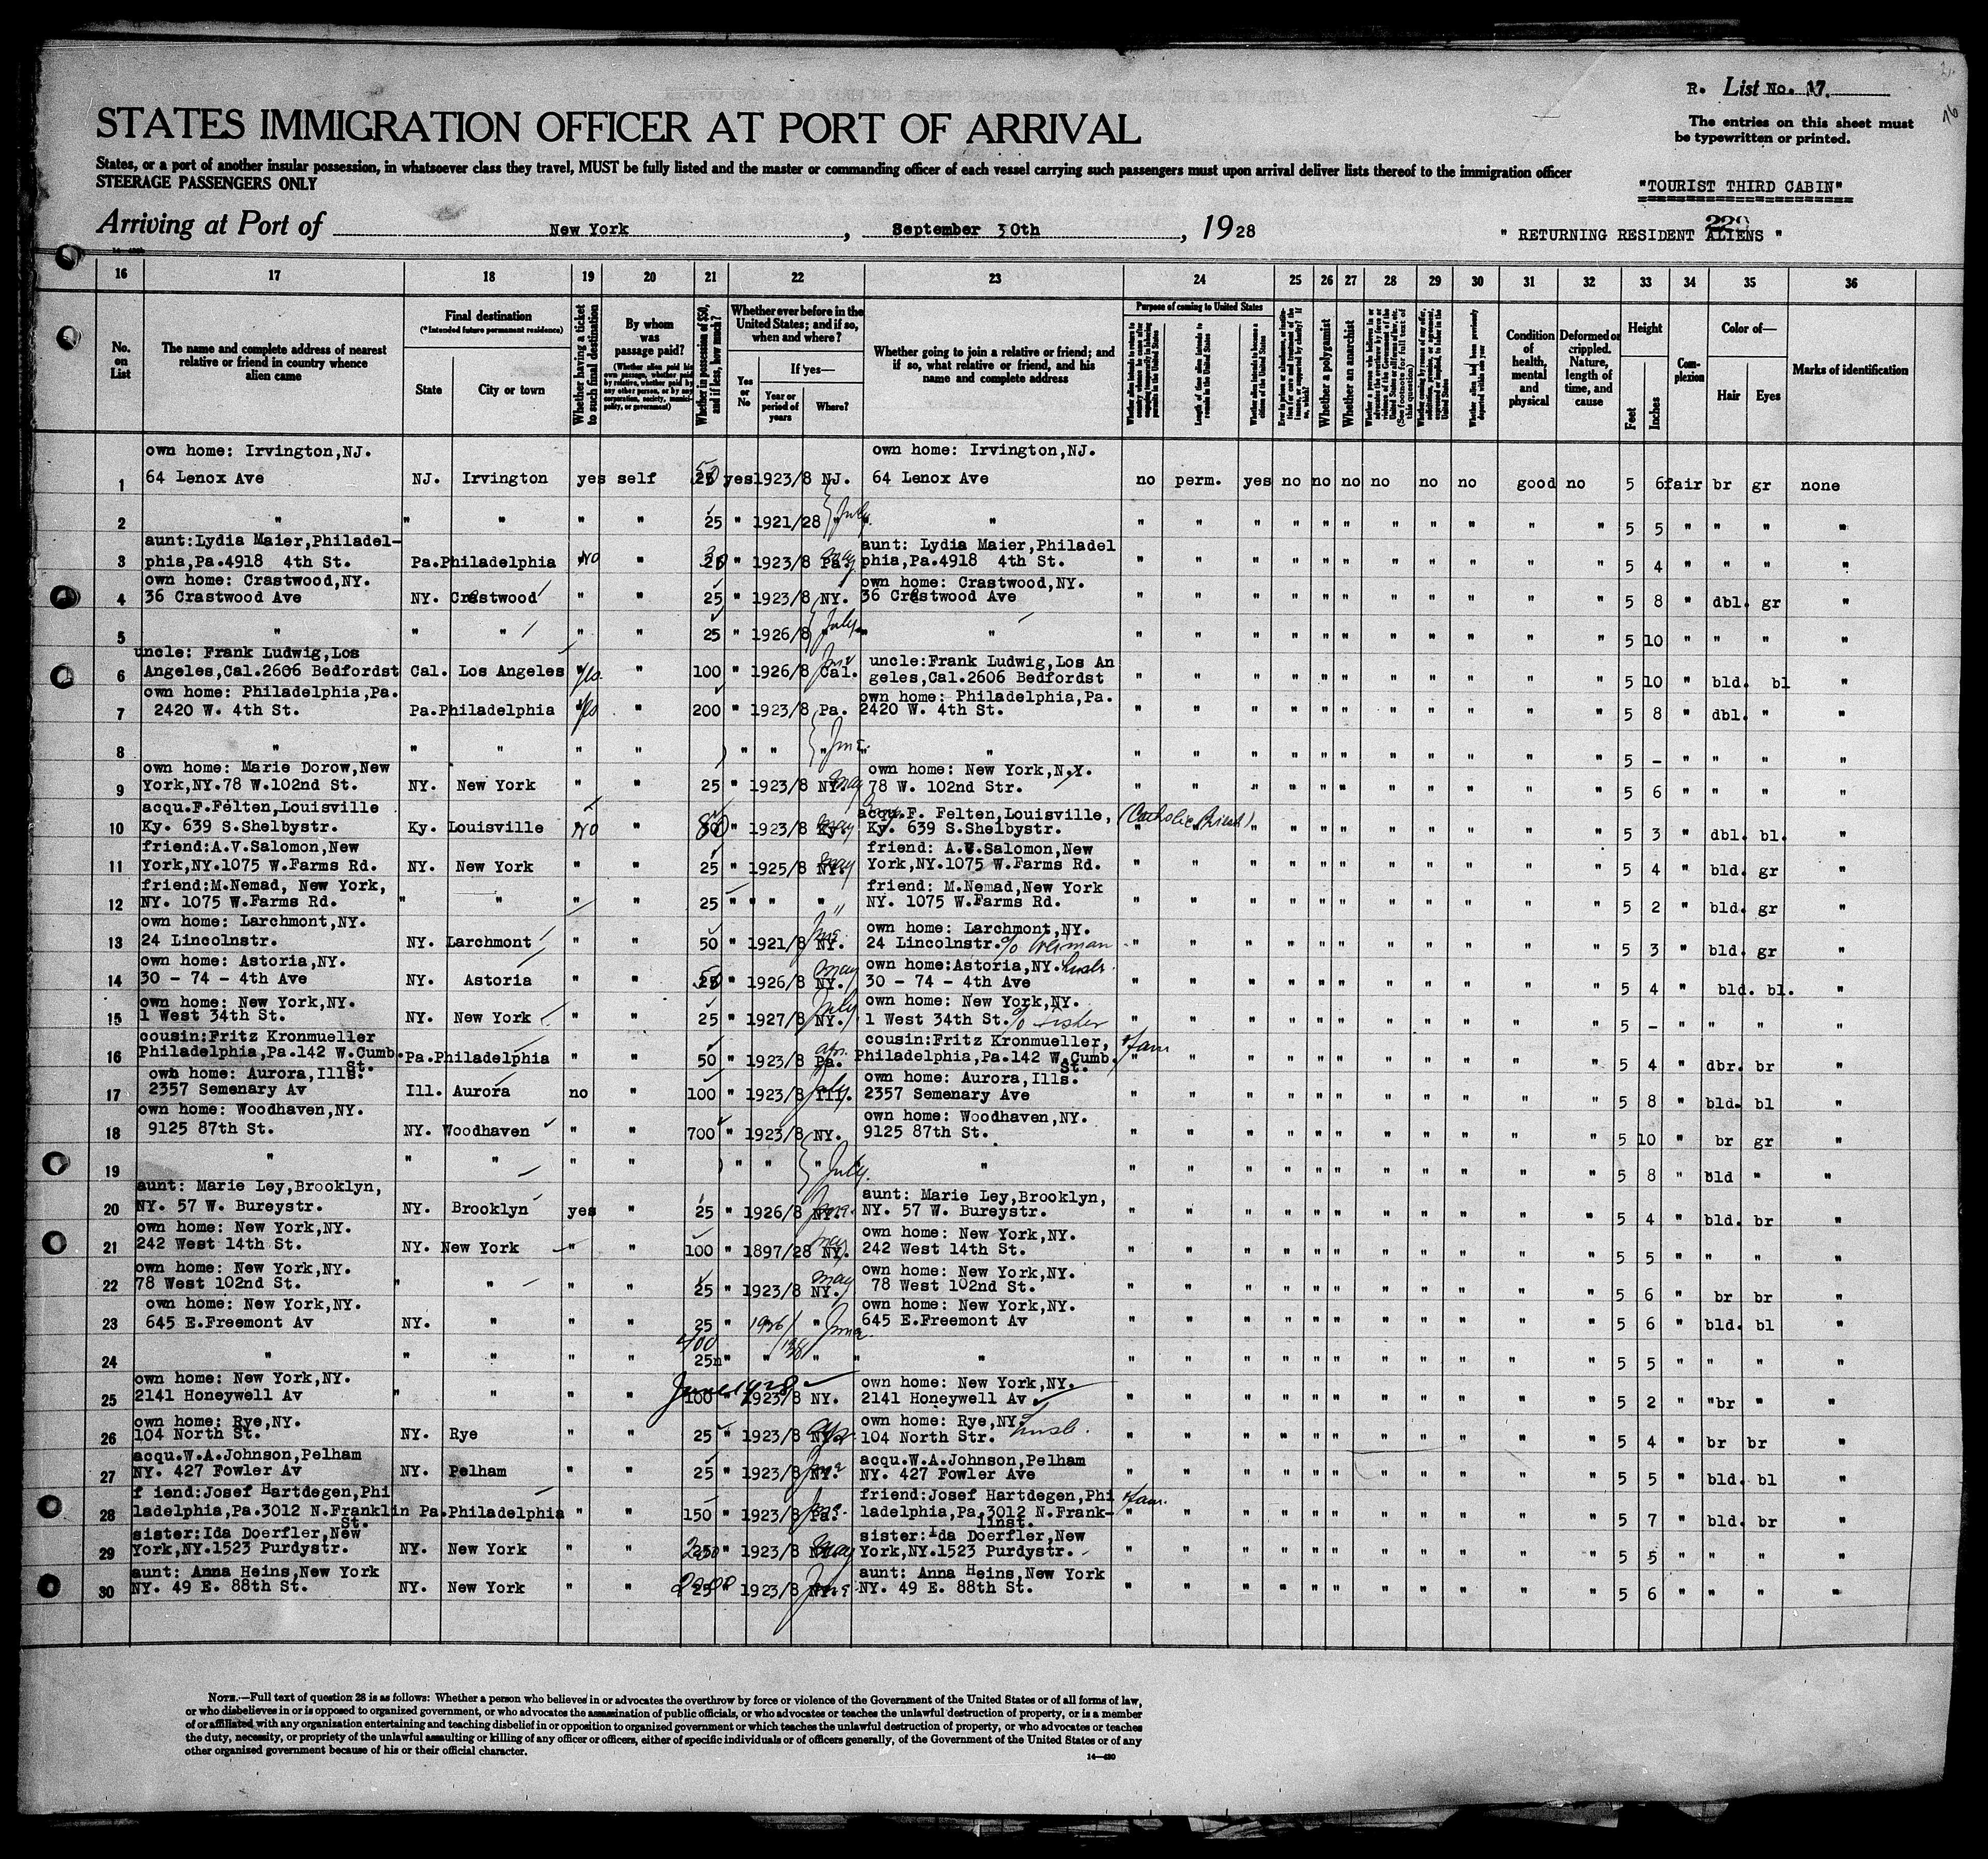 R. List No. 17.
The entries on this sheet must
be typewritten or printed.
STATES IMMIGRATION OFFICER AT PORT OF ARRIVAL
States, or a port of another insular possession, in whatsoever class they travel, MUST be fully listed and the master or commanding officer of each vessel carrying such passengers must upon arrival deliver lists thereof to the immigration officer
STEERAGE PASSENGERS ONLY
"TOURIST THIRD CABIN"
Arriving at Port of New York, September 30th, 1928
" RETURNING RESIDENT ALIENS "
16 17 18 19 20 21 22 23 24 25 26 27 28 29 30 31 32 33 34 35 36
No. on List
The name and complete address of nearest relative or friend in country whence alien came
Final destination
(*Intended future permanent residence)
State City or town
Whether having a ticket to such final destination
By whom was passage paid?
(Whether alien paid his own passage, whether paid by relative, whether paid by any other person, or by any corporation, society, municipality, or government)
Whether in possession of $50, and if less, how much?
Whether ever before in the United States; and if so, when and where?
Yes or No
If yes—
Year or period of years Where?
Whether going to join a relative or friend; and if so, what relative or friend, and his name and complete address
Purpose of coming to United States
Length of time alien intends to remain in the United States
Whether alien intends to become a citizen of the United States
Whether a polygamist
Whether an anarchist
Condition of health, mental and physical
Deformed or crippled. Nature, length of time, and cause
Height
Feet Inches
Complexion
Color of—
Hair Eyes
Marks of identification
own home: Irvington,NJ. own home: Irvington,NJ.
1 64 Lenox Ave NJ. Irvington yes self 50 yes 1923/8 NJ. 64 Lenox Ave no perm. yes no no no no no no good no 5 6 fair br gr none
2 " " " " " 25 " 1921/28 " July " " " " " " " " " " " " 5 5 " " " "
aunt:Lydia Maier,Philadel- aunt: Lydia Maier,Philadel
3 phia,Pa.4918 4th St. Pa.Philadelphia No " " 1923/8 Pa. may phia,Pa.4918 4th St. " " " " " " " " " " " 5 4 " " " "
own home: Crastwood,NY. own home: Crastwood,NY.
4 36 Crastwood Ave NY. Crestwood " " 25 " 1923/8 NY. 36 Crestwood Ave " " " " " " " " " " " 5 8 " dbl. gr "
5 " " " " " 25 " 1926/8 " July " " " " " " " " " " " " 5 10 " " " "
uncle: Frank Ludwig,Los uncle:Frank Ludwig,Los An
6 Angeles,Cal.2606 Bedfordst Cal. Los Angeles Yes " 100 " 1926/8 Cal. geles,Cal.2606 Bedfordst " " " " " " " " " " " 5 10 " bld. bl "
own home: Philadelphia,Pa. own home: Philadelphia,Pa.
7 2420 W. 4th St. Pa.Philadelphia Yes " 200 " 1923/8 Pa. 2420 W. 4th St. " " " " " " " " " " " 5 8 " dbl. " "
8 " " " " " ) " " " June " " " " " " " " " " " " 5 - " " " "
own home: Marie Dorow,New own home: New York,N.Y.
9 York,NY.78 W.102nd St. NY. New York " " 25 " 1923/8 NY. may 78 W. 102nd Str. " " " " " " " " " " " 5 6 " " " "
acqu.F.Felten,Louisville acqu.F. Felten,Louisville, (Catholic Priest)
10 Ky. 639 S.Shelbystr. Ky. Louisville No " 80 " 1923/8 Ky. may Ky. 639 S.Shelbystr. " " " " " " " " " " " 5 3 " dbl. bl. "
friend:A.V.Salomon,New friend: A.V.Salomon,New
11 York,NY.1075 W.Farms Rd. NY. New York " " 25 " 1925/8 NY. may York,NY.1075 W.Farms Rd. " " " " " " " " " " " 5 4 " bld. gr "
friend:M.Nemad, New York, friend: M.Nemad,New York
12 NY. 1075 W.Farms Rd. " " " " 25 " " " NY. 1075 W.Farms Rd. " " " " " " " " " " " 5 2 " bld. gr "
own home: Larchmont,NY. own home: Larchmont,NY.
13 24 Lincolnstr. NY. Larchmont " " 50 " 1921/8 NY. 24 Lincolnstr. " " " " " " " " " " " 5 3 " bld. gr "
own home: Astoria,NY. own home:Astoria,NY.
14 30 - 74 - 4th Ave NY. Astoria " " 50 " 1926/8 NY. may 30 - 74 - 4th Ave " " " " " " " " " " " 5 4 " bld. bl. "
own home: New York,NY. own home: New York,NY.
15 1 West 34th St. NY. New York " " 25 " 1927/8 NY. July 1 West 34th St. c/o Fisher " " " " " " " " " " " 5 - " " " "
cousin:Fritz Kronmueller cousin:Fritz Kronmueller,
16 Philadelphia,Pa.142 W.Cumb. St. Pa.Philadelphia " " 50 " 1923/8 Pa. Apr. Philadelphia,Pa.142 W.Cumb. St. " " " " " " " " " " " 5 4 " dbr. br "
own home: Aurora,Ills. own home: Aurora,Ills.
17 2357 Semenary Av Ill. Aurora no " 100 " 1923/8 Ill. July 2357 Semenary Ave " " " " " " " " " " " 5 8 " bld. bl "
own home: Woodhaven,NY. own home: Woodhaven,NY.
18 9125 87th St. NY. Woodhaven " " 700 " 1923/8 NY. 9125 87th St. " " " " " " " " " " " 5 10 " br gr "
19 " " " " " ) " " " July. " " " " " " " " " " " " 5 8 " bld " "
aunt: Marie Ley,Brooklyn, aunt: Marie Ley,Brooklyn,
20 NY. 57 W. Bureystr. NY. Brooklyn yes " 25 " 1926/8 NY. June NY. 57 W. Bureystr. " " " " " " " " " " " 5 4 " bld. br "
own home: New York,NY. own home: New York,NY.
21 242 West 14th St. NY. New York " " 100 " 1897/28 NY. may 242 West 14th St. " " " " " " " " " " " 5 5 " " " "
own home: New York,NY. own home: New York,NY.
22 78 West 102nd St. " " " " 25 " 1923/8 NY. may 78 West 102nd St. " " " " " " " " " " " 5 6 " br br "
own home: New York,NY. own home: New York,NY.
23 645 E.Freemont Av NY. " " " 25 " 1926/ " June 645 E.Freemont Av " " " " " " " " " " " 5 6 " bld. bl "
24 " " " " " 25 " " " " " " " " " " " " " " " " 5 5 " " " "
own home: New York,NY. own home: New York,NY.
25 2141 Honeywell Av " " " " 100 June 1928 " 1923/8 NY. 2141 Honeywell Av " " " " " " " " " " " 5 2 " "br " "
own home: Rye,NY. own home: Rye,NY.
26 104 North St. NY. Rye " " 25 " 1923/8 NY. 104 North Str. " " " " " " " " " " " 5 4 " br br "
acqu.W.A.Johnson,Pelham acqu.W.A.Johnson,Pelham
27 NY. 427 Fowler Av NY. Pelham " " 25 " 1923/8 NY. June NY. 427 Fowler Ave " " " " " " " " " " " 5 5 " bld. bl "
f iend:Josef Hartdegen,Phi friend:Josef Hartdegen,Phi
28 ladelphia,Pa.3012 N.Franklin St. Pa.Philadelphia " " 150 " 1923/8 Pa. June ladelphia,Pa.3012 N.Frank- linst. " " " " " " " " " " " 5 7 " bld. br "
sister:Ida Doerfler,New sister:Ida Doerfler,New
29 York,NY.1523 Purdystr. NY. New York " " " 1923/8 NY. May York,NY.1523 Purdystr. " " " " " " " " " " " 5 5 " " " "
aunt: Anna Heins,New York aunt: Anna Heins,New York
30 NY. 49 E. 88th St. NY. New York " " 25 " 1923/8 NY. June NY. 49 E. 88th St. " " " " " " " " " " " 5 6 " " " "
NOTE.—Full text of question 28 is as follows: Whether a person who believes in or advocates the overthrow by force or violence of the Government of the United States or of all forms of law,
or who disbelieves in or is opposed to organized government, or who advocates the assassination of public officials, or who advocates or teaches the unlawful destruction of property, or is a member
of or affiliated with any organization entertaining and teaching disbelief in or opposition to organized government or which teaches the unlawful destruction of property, or who advocates or teaches
the duty, necessity, or propriety of the unlawful assaulting or killing of any officer or officers, either of specific individuals or of officers generally, of the Government of the United States or of any
other organized government because of his or their official character.
14—430